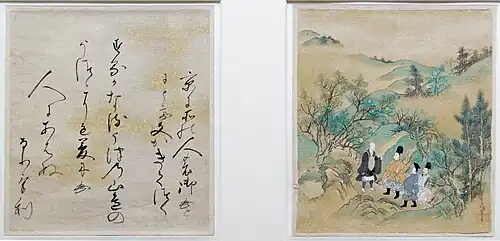 京にその人の御も
とにとて文かきてつく
するかなるうつの山辺の
うつゝにも夢にも
人にあはぬ
なりけり